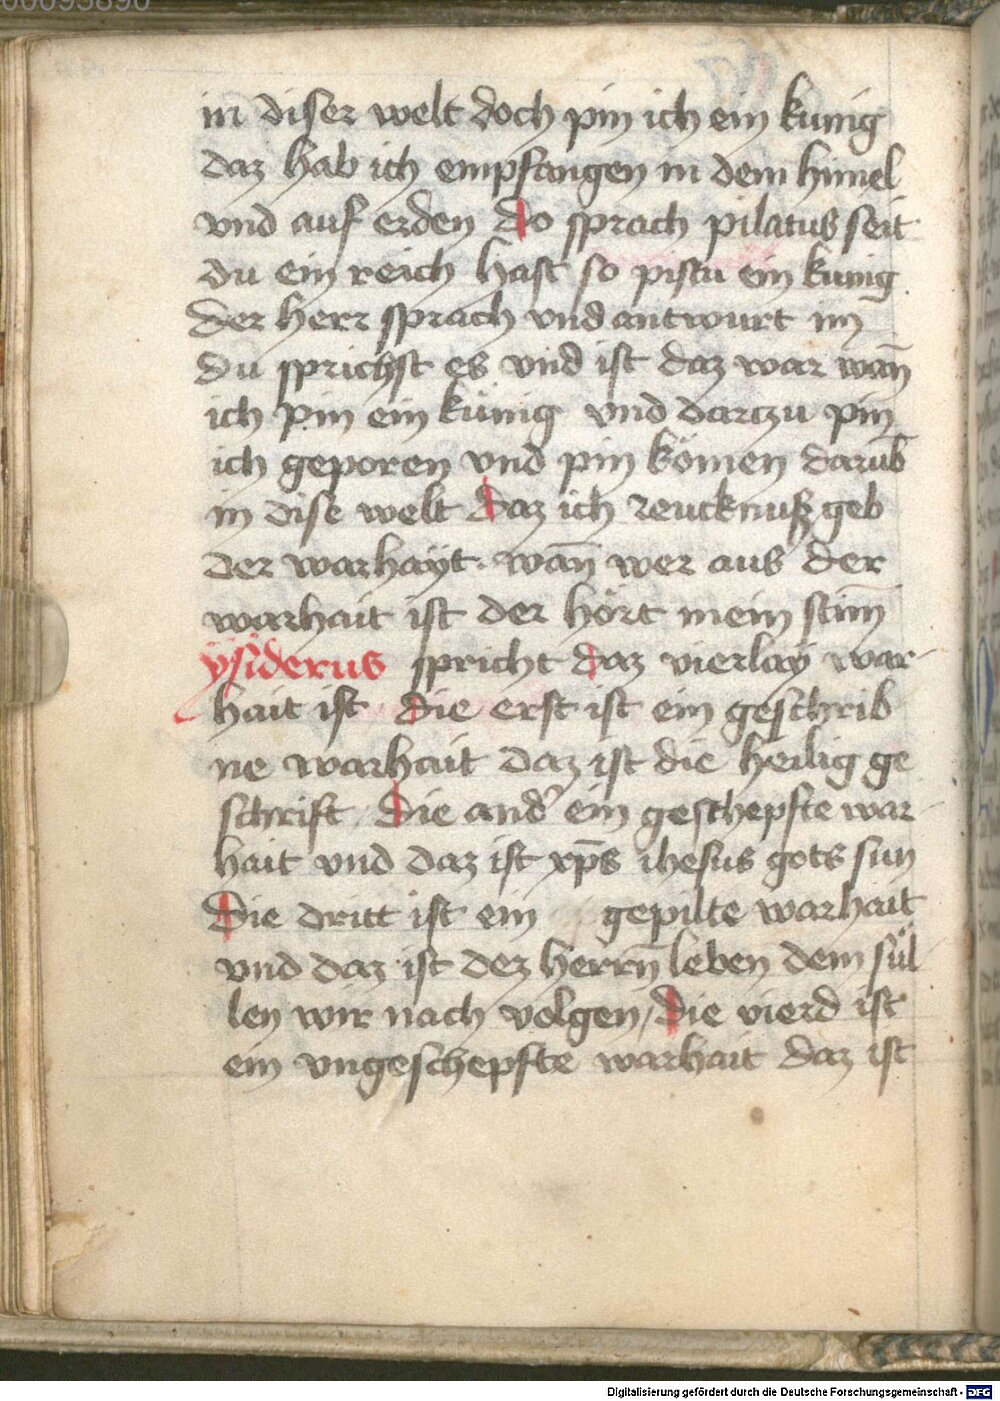 in diser welt doch pin ich ein kunig
daz hab ich empfangen in dem himel
vnd auf erden do sprach pilatus seit
du ein reich hast so pistu ein kunig
der herr sprach vnd antwurt im
du sprichst es vnd ist daz war wan̄
ich pin ein künig vnd darczu pin
ich geporen vnd pin kömen darūb
in dise welt daz ich zeucknuß geb
der warhayt. wan̄ wer aus der
warhait ist der hört mein stim̄
ysiderus spricht daz vierlay war-
hait ist die erst ist ein geschrib
ne warhait daz ist die heilig ge
schrift die and' ein geschepfte war-
hait vnd daz ist xp̄s ihesus gots sun
die dritt ist ein gepilte warhait
vnd daz ist dez herrn̄ leben dem sül-
len wir nach volgen / die vierd ist
ein vngeschepfte warhait daz ist
Digitalisierung gefördert durch die Deutsche Forschungsgemeinschaft - DFG